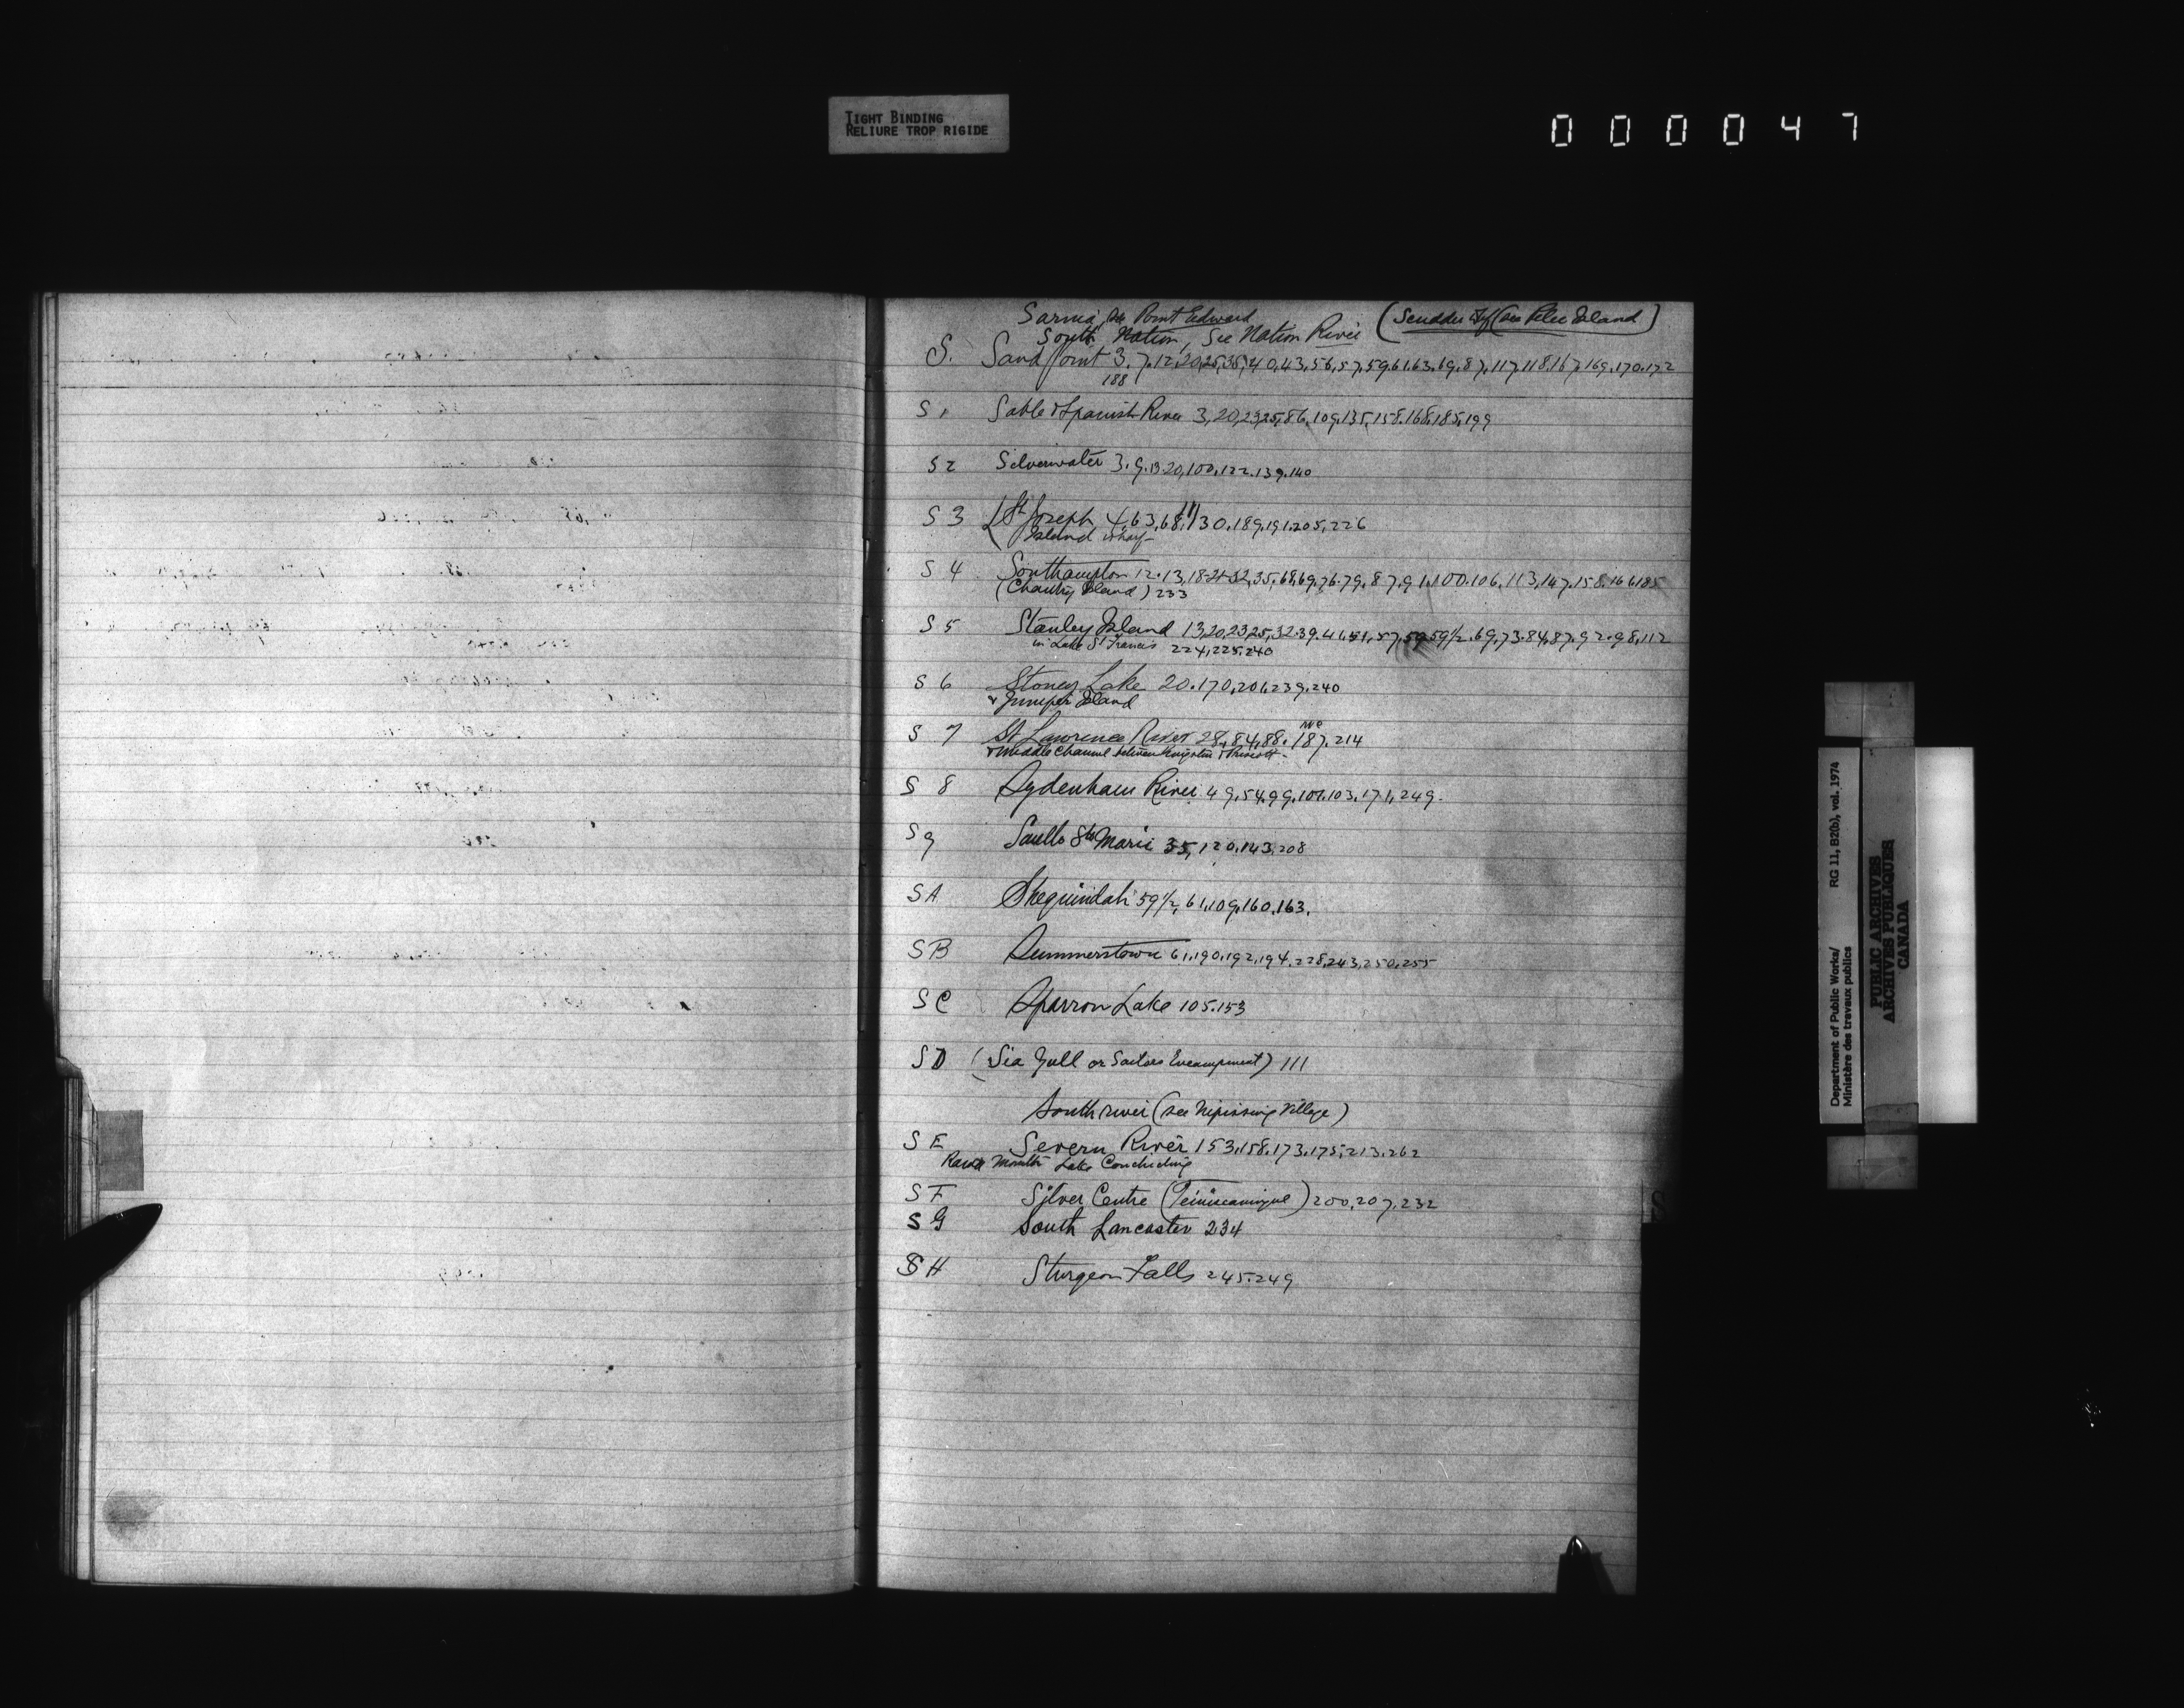 TIGHT BINDING
RELIURE TROP RIGIDE
000047
Sarnia, see Point Edward (Scudder Wf (see Pelee Island)
South Nation, See Nation River
S. Sand Point 3.7.12,20,25,38,40,43,56,57,59,61,63,69,87,117,118,167,169,170,172
188
S 1 Sable & Spanish River 3,20,23,25,86,109,135,158,168,185,199
S 2 Silverwater 3.9.13.20,100,122.139.140
S 3 (St Joseph 4,63,68,111,130.189.191.205,226
Island wharf
S 4 Southampton 12.13,18-21-32,35,68,69,76.79,87,91,100.106,113,147,158,166,185
(Chantry Island) 233
S 5 Stanley Island 13,20,23,25,32.39.41,51,57,59,59½.69,73.84,87,92.98,112
in Lake St Francis 224,225,240
S 6 Stoney Lake 20.170,201,239.240
& Juniper Island
S 7 St Lawrence River 28,84,88.187.214
& Middle Channel between Kingston & Prescott
S 8 Sydenham River 49,54,99,101,103,171,249.
S 9 Saulto Ste Marie 35,120,143,208
S A Sheguindah 59½,61,109,160,163.
S B Summerstown 61,190,192,194,228,243,250,255
S C Sparrow Lake 105.153
S D (Sea Gull or Sailors Encampment) 111
South river (see Nipissing Village)
S E Severn River 153,158,173,175,213,262
Mouth Lake Couchiching
S F Silver Centre (Temiscamingue) 200,207,232
S G South Lancaster 234
S H Sturgeon Falls 245.249
S
Department of Public Works/ RG 11, B2(b), vol. 1974
Ministère des travaux publics
PUBLIC ARCHIVES
ARCHIVES PUBLIQUES
CANADA